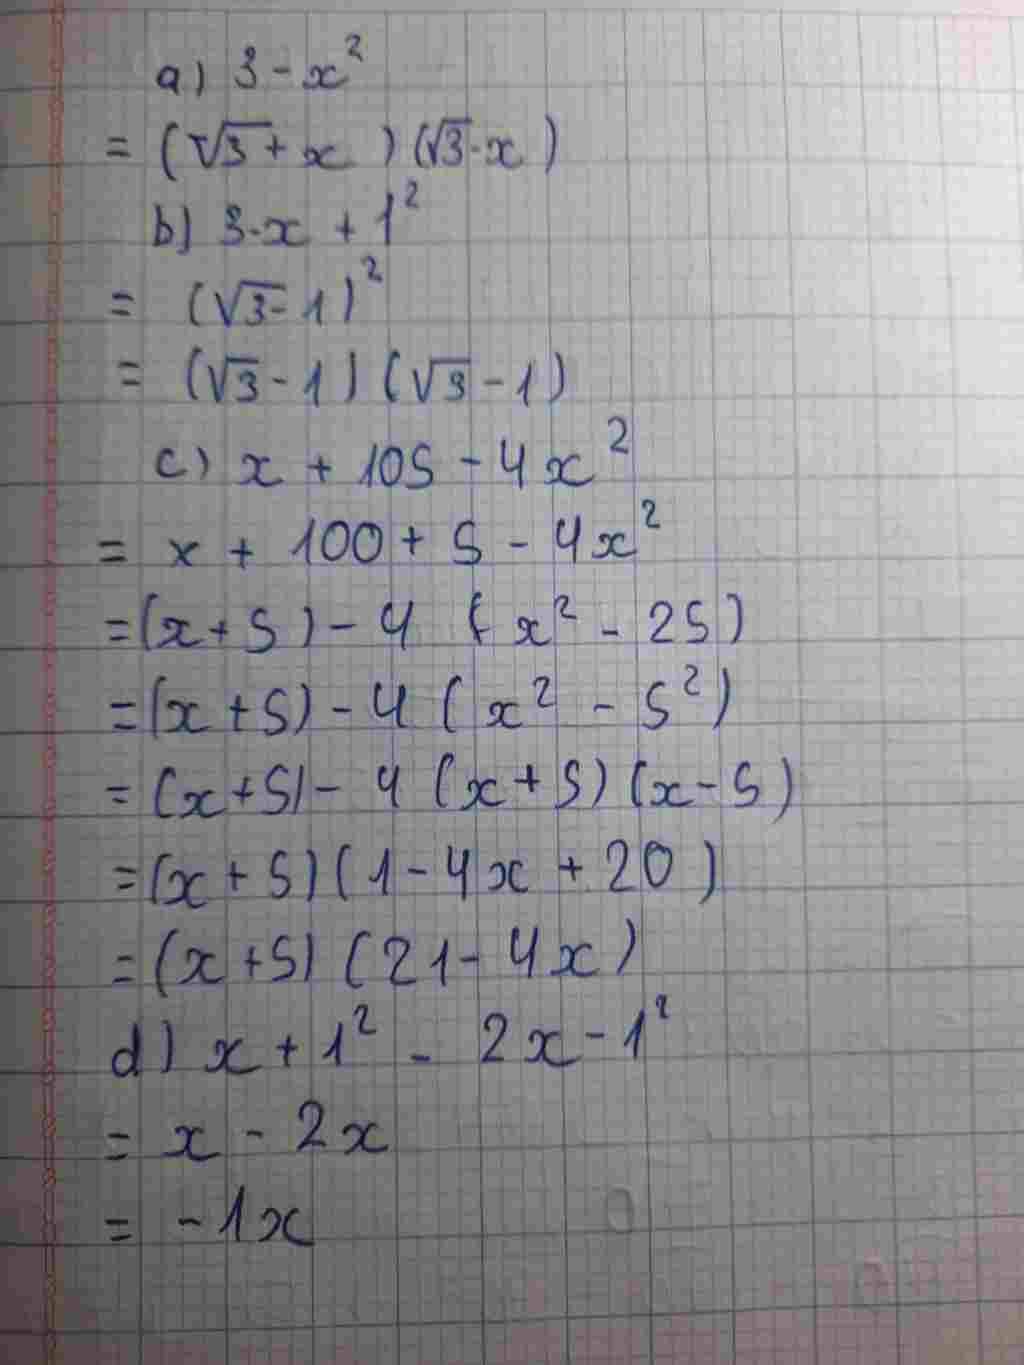 a) 3 - x²
= (√3 + x) (√3 - x)
b) 3 - x + 1²
= (√3 - 1)²
= (√3 - 1) (√3 - 1)
c) x + 105 - 4x²
= x + 100 + 5 - 4x²
= (x + 5) - 4 (x² - 25)
= (x + 5) - 4 (x² - 5²)
= (x + 5) - 4 (x + 5) (x - 5)
= (x + 5) (1 - 4x + 20)
= (x + 5) (21 - 4x)
d) x + 1² - 2x - 1²
= x - 2x
= - 1x